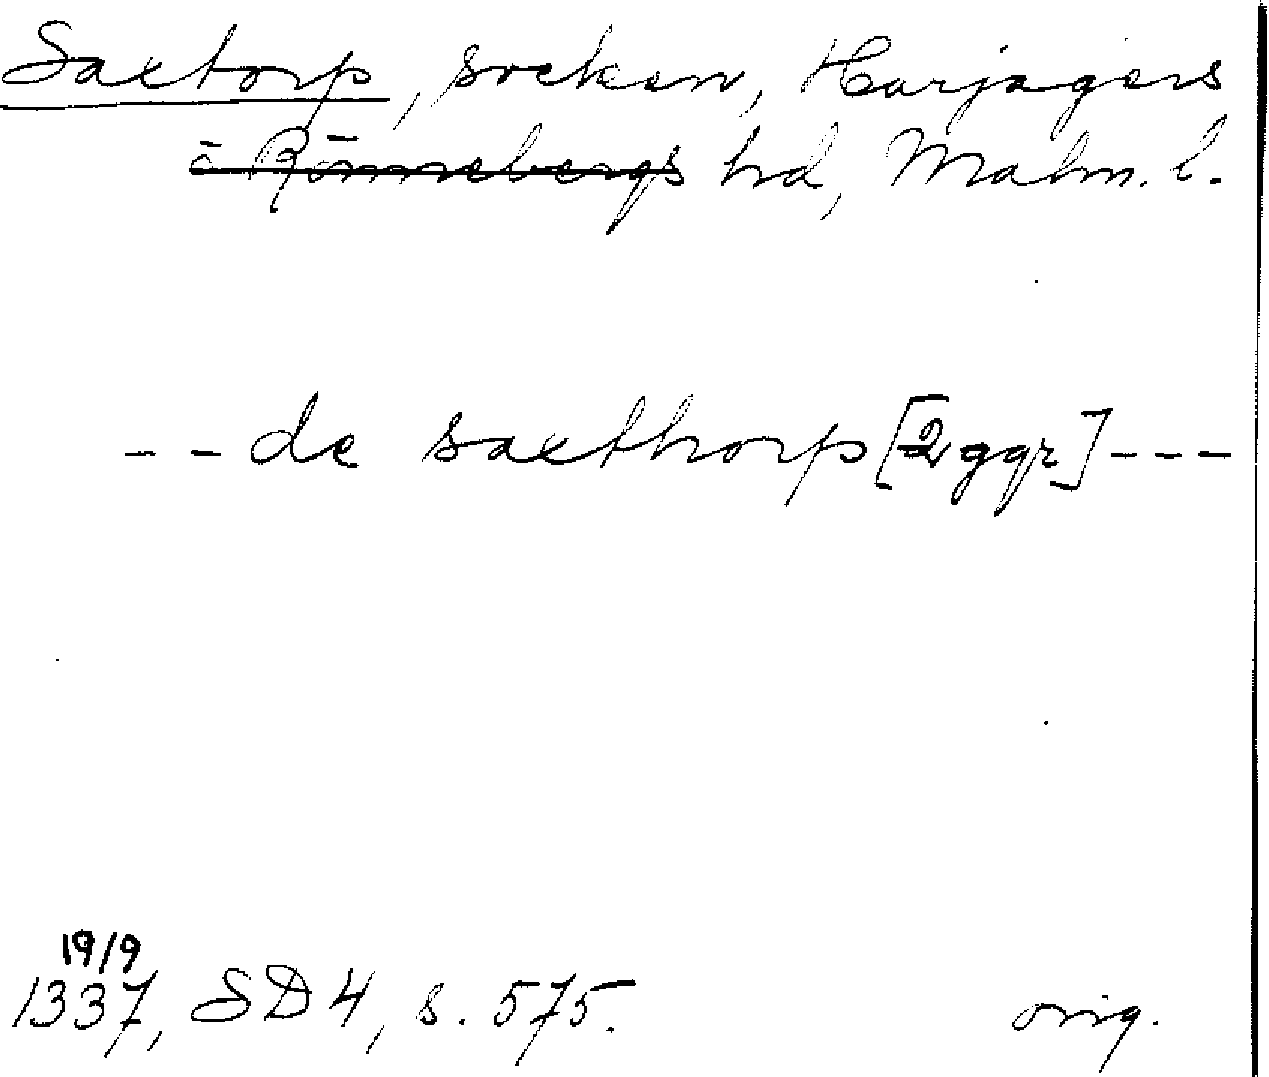 Saxtorp, socken, Harjagers
o Rönnebergs hd, Malm. l.
-- de saxthorp [2 ggr] ---
19/9
1337, SD 4, s. 575. orig.